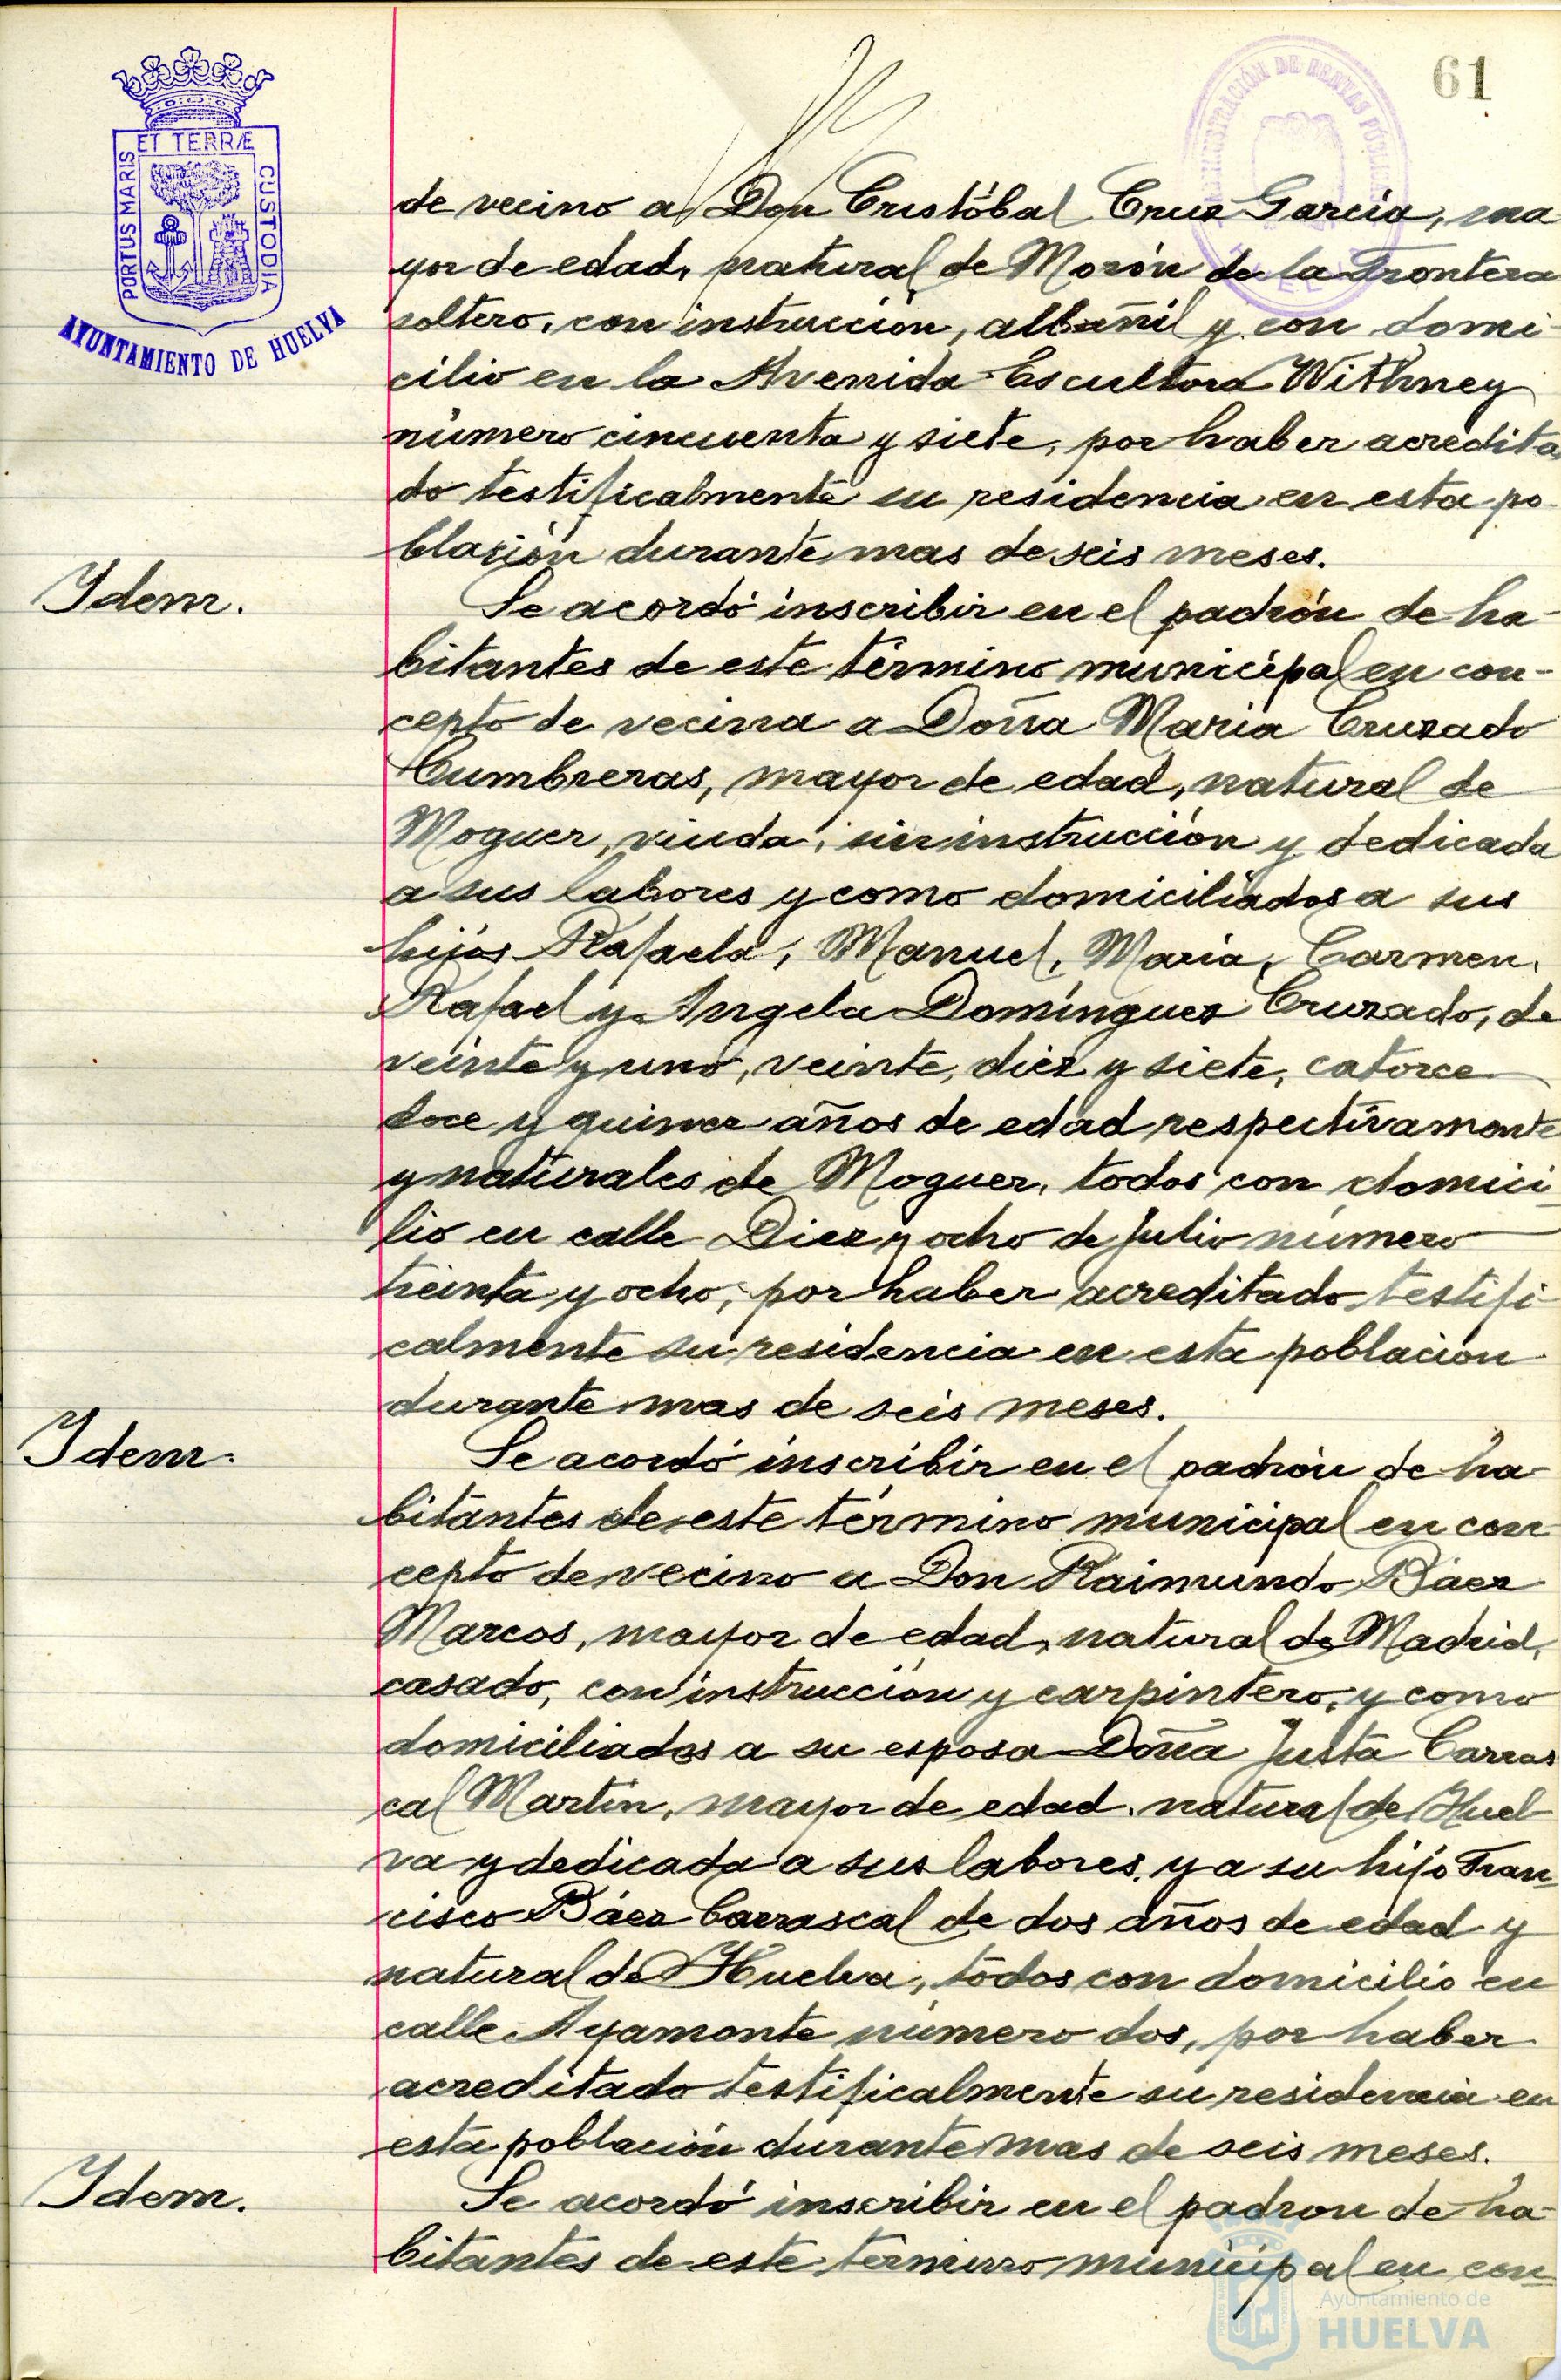 61
ET TERRÆ
PORTUS MARIS
CUSTODIA
AYUNTAMIENTO DE HUELVA
ADMINISTRACIÓN DE RENTAS PÚBLICAS
de vecino a Don Cristóbal Cruz García, ma
yor de edad, natural de Morón de la Frontera
soltero, con instrucción, albañil y con domi-
cilio en la Avenida Escultora Withney
número cincuenta y siete, por haber acredita
do testificalmente su residencia en esta po-
blación durante mas de seis meses.
Ydem.
Se acordó inscribir en el padrón de ha-
bitantes de este término municipal en con-
cepto de vecina a Doña Maria Cruzado
Cumbreras, mayor de edad, natural de
Moguer, viuda, sin instrucción y dedicada
a sus labores y como domiciliados a sus
hijos Rafaela, Manuel, Maria, Carmen,
Rafael y Angela Domínguez Cruzado, de
veinte y uno, veinte, diez y siete, catorce
doce y quince años de edad respectivamente
y naturales de Moguer, todos con domici-
lio en calle Diez y ocho de Julio número
treinta y ocho, por haber acreditado testifi-
calmente su residencia en esta población
durante mas de seis meses.
Ydem.
Se acordó inscribir en el padrón de ha-
bitantes de este término municipal en con-
cepto de vecino a Don Raimundo Báez
Marcos, mayor de edad, natural de Madrid,
casado, con instrucción y carpintero, y como
domiciliados a su esposa Doña Justa Carras
cal Martín, mayor de edad, natural de Huel-
va y dedicada a sus labores, y a su hijo Fran-
cisco Báez Carrascal de dos años de edad y
natural de Huelva, todos con domicilio en
calle Ayamonte número dos, por haber
acreditado testificalmente su residencia en
esta población durante mas de seis meses.
Ydem.
Se acordó inscribir en el padron de ha-
bitantes de este término municipal en con-
Ayuntamiento de
HUELVA